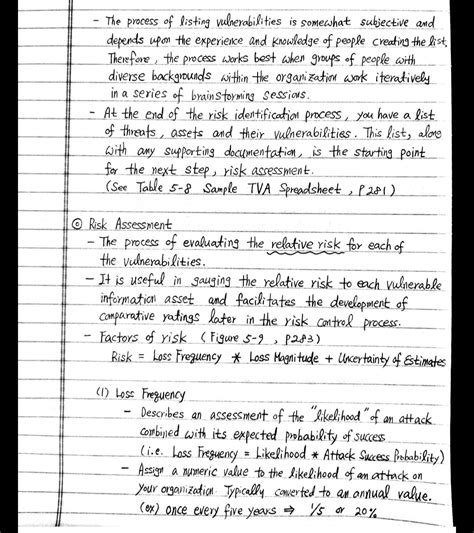 - The process of listing vulnerabilities is somewhat subjective and
depends upon the experience and knowledge of people creating the list.
Therefore, the process works best when groups of people with
diverse backgrounds within the organization work iteratively
in a series of brainstorming sessions.
- At the end of the risk identification process, you have a list
of threats, assets and their vulnerabilities. This list, along
with any supporting documentation, is the starting point
for the next step, risk assessment.
(See Table 5-8 Sample TVA Spreadsheet, P281)
◎ Risk Assessment
- The process of evaluating the relative risk for each of
the vulnerabilities.
- It is useful in gauging the relative risk to each vulnerable
information asset and facilitates the development of
comparative ratings later in the risk control process.
- Factors of risk (Figure 5-9, P283)
Risk = Loss Frequency * Loss Magnitude + Uncertainty of Estimates
(1) Loss Frequency
- Describes an assessment of the "likelihood" of an attack
combined with its expected probability of success
(i.e. Loss Frequency = Likelihood * Attack Success Probability)
- Assign a numeric value to the likelihood of an attack on
your organization Typically converted to an annual value.
(ex) once every five years ⇒ 1/5 or 20%